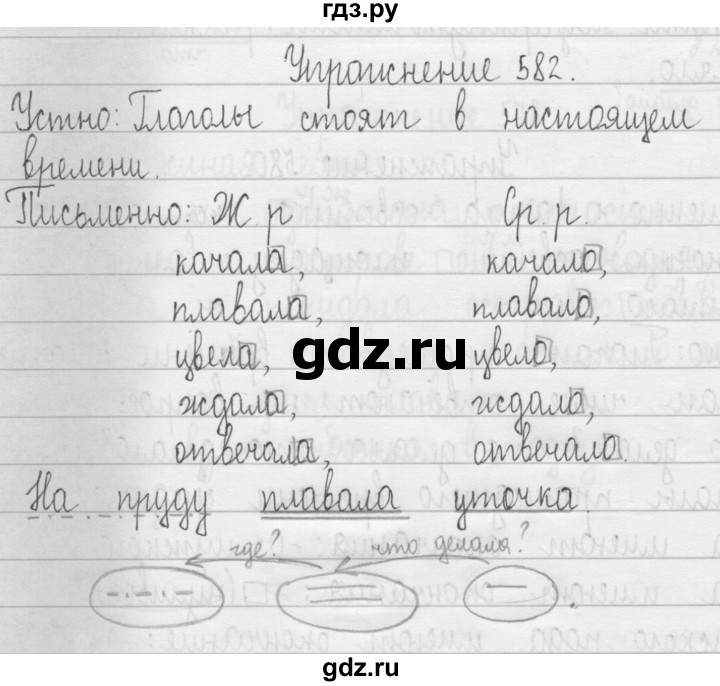 гдз.ру
Упражнение 582.
Устно: Глаголы стоят в настоящем
времени.
Письменно: Ж. р Ср. р.
качала, качало,
плавала, плавало,
gdz.ru
цвела, цвело,
ждала, ждало,
отвечала, отвечало
На пруду плавала уточка
где? что делала?
gdz.ru